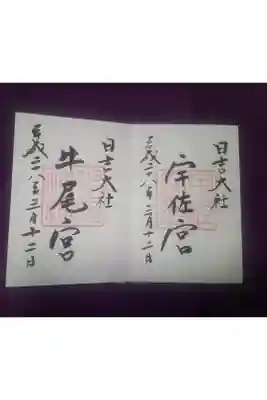 日吉大社
宇佐宮
平成二十八年二月十二日
日吉大社
牛尾宮
平成二八年二月十二日